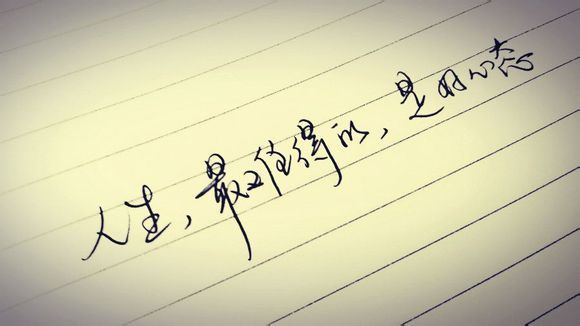 人生，最难得的，是心态